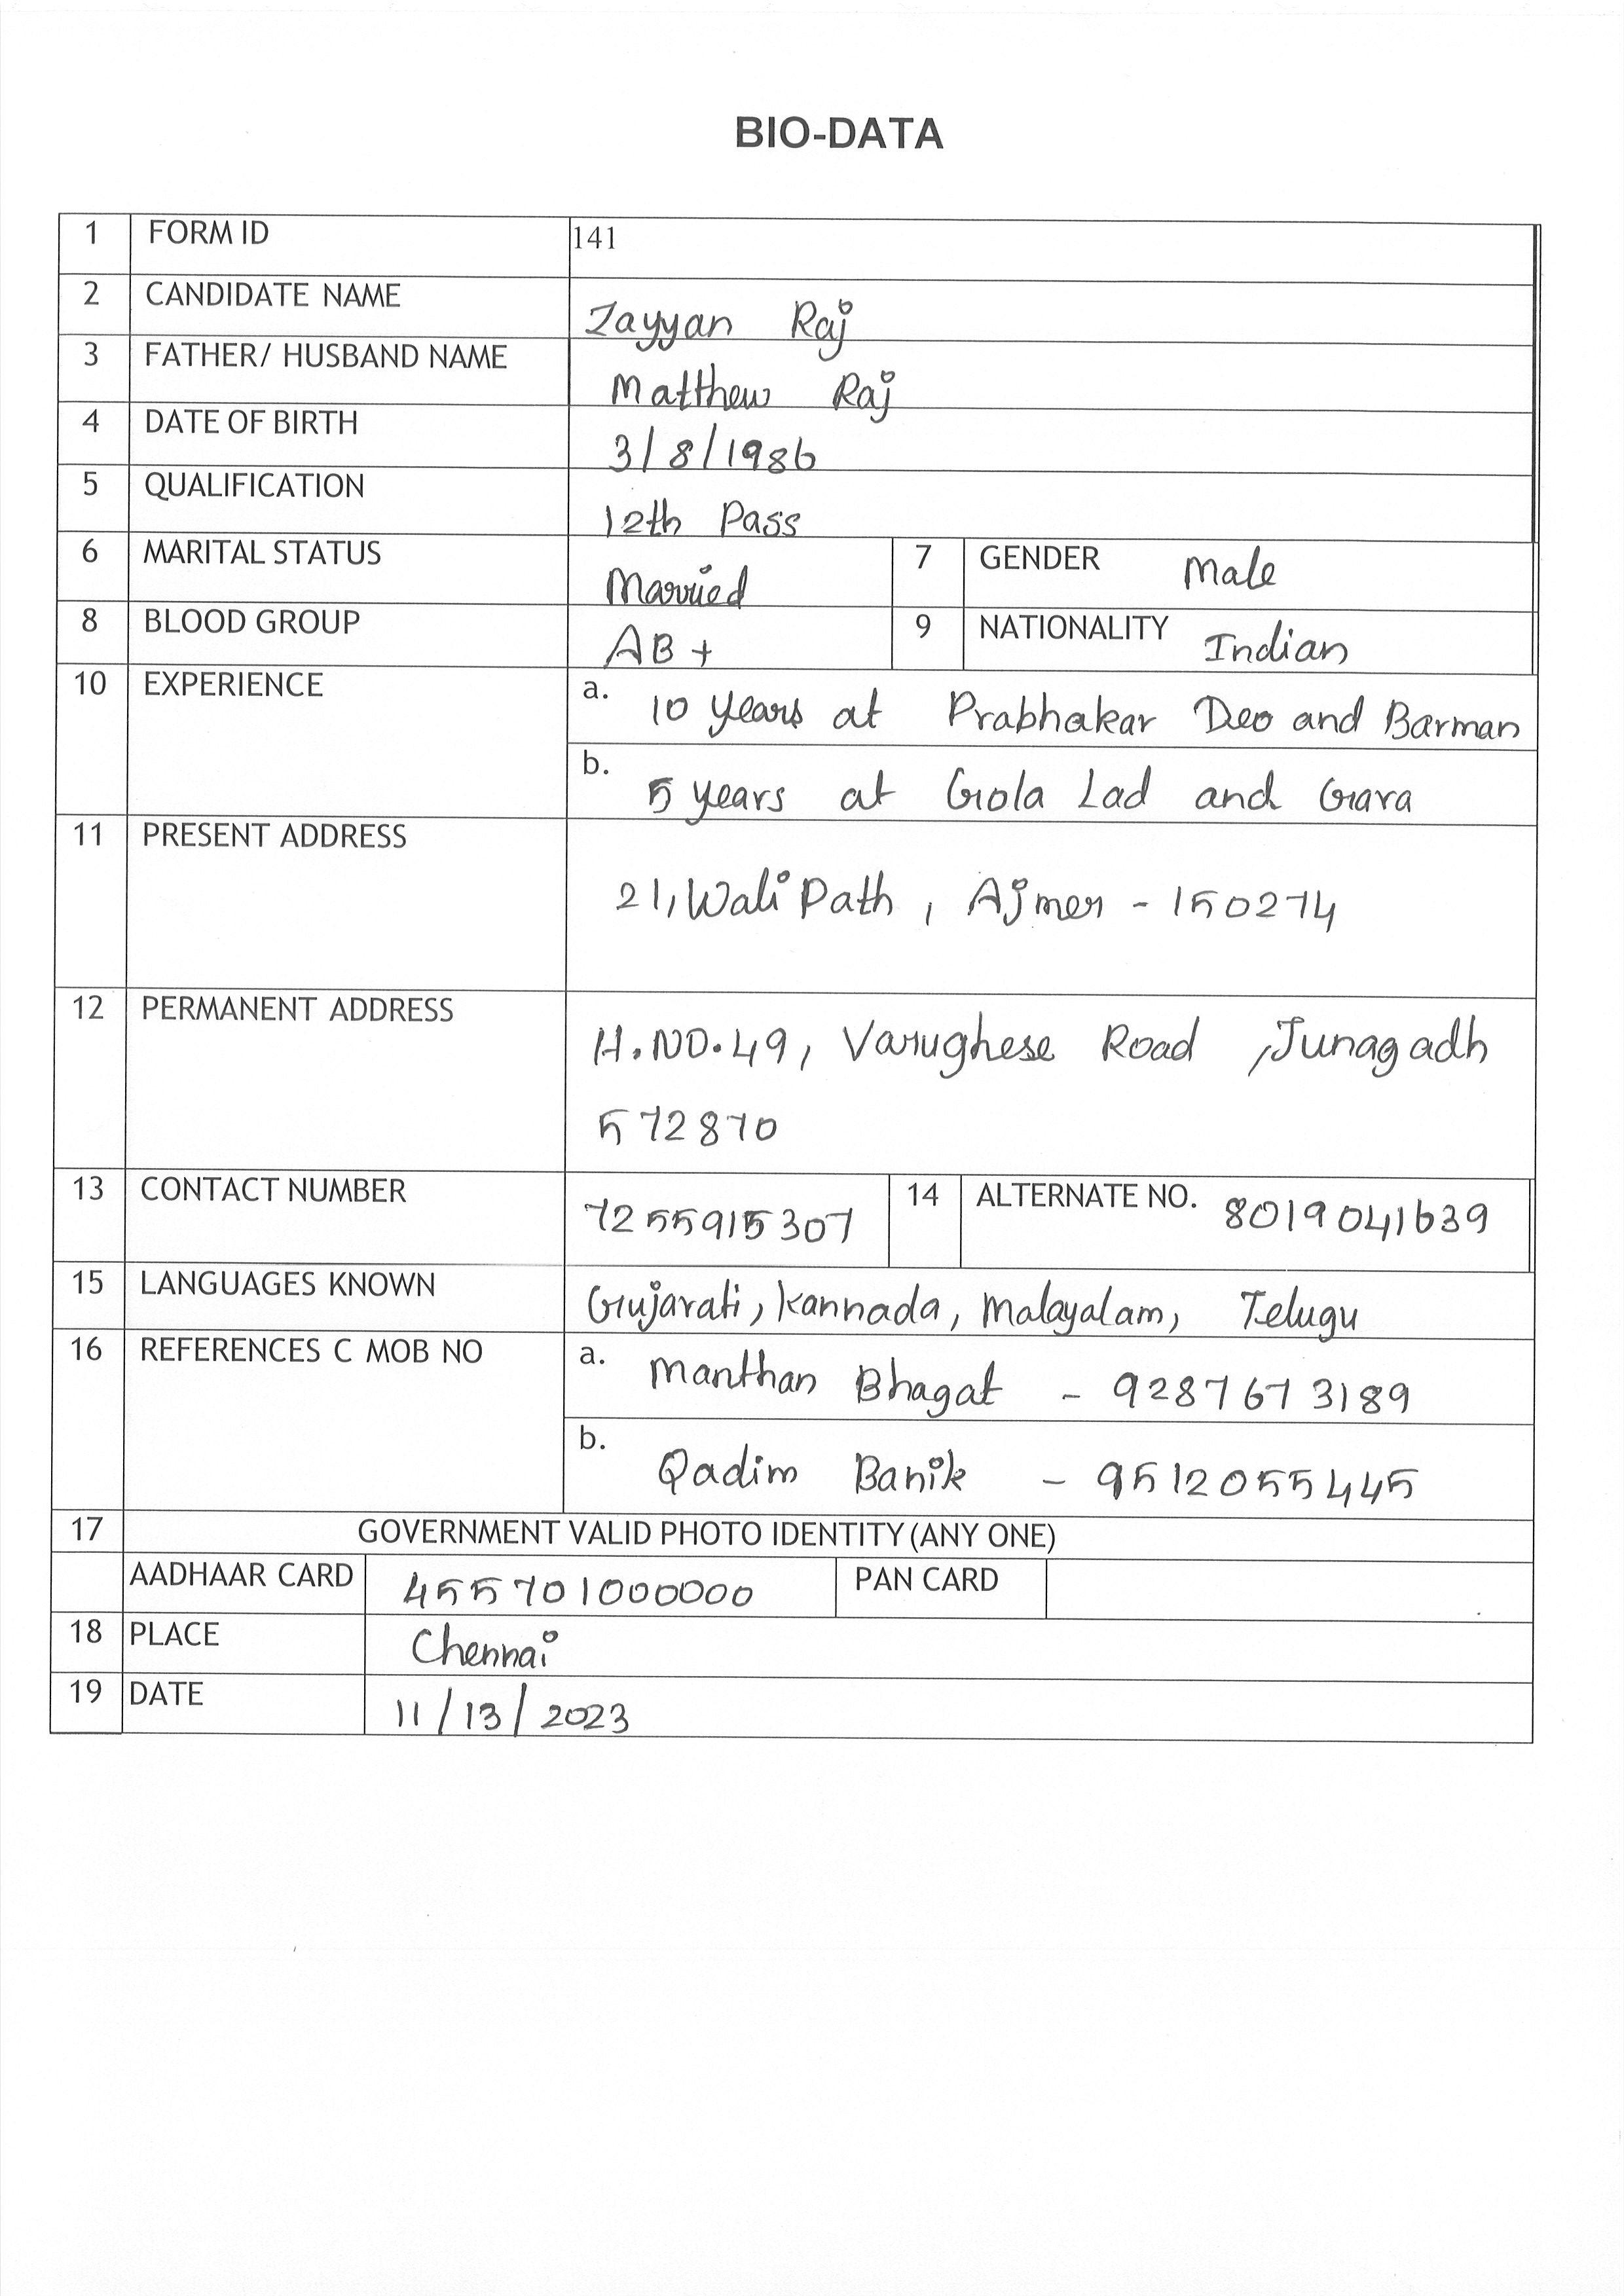 BIO-DATA
1 FORM ID 141
2 CANDIDATE NAME Zayyan Raj
3 FATHER/ HUSBAND NAME Matthew Raj
4 DATE OF BIRTH 3/8/1986
5 QUALIFICATION 12th Pass
6 MARITAL STATUS Married 7 GENDER Male
8 BLOOD GROUP AB+ 9 NATIONALITY Indian
10 EXPERIENCE a. 10 years at Prabhakar Deo and Barman
b. 5 years at Gola Lad and Gara
11 PRESENT ADDRESS
21, Wali Path, Ajmer - 150274
12 PERMANENT ADDRESS H.NO.49, Varughese Road, Junagadh
572870
13 CONTACT NUMBER 7255915307 14 ALTERNATE NO. 8019041639
15 LANGUAGES KNOWN Gujarati, Kannada, Malayalam, Telugu
16 REFERENCES C MOB NO a. Manthan Bhagat - 9287673189
b. Qadim Banik - 9512055445
17 GOVERNMENT VALID PHOTO IDENTITY (ANY ONE)
AADHAAR CARD 455701000000 PAN CARD
18 PLACE Chennai
19 DATE 11/13/2023